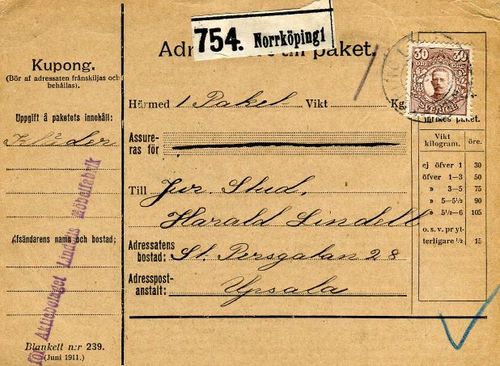 Kupong.
(Bör af adressaten frånskiljas och
behållas).
Uppgift å paketets innehåll:
Kläder
Afsändarens namn och bostad:
för Aktiebolaget Lindells Möbelfabrik
Blankett n:r 239.
(Juni 1911.)
754. Norrköping 1
till paket.
Härmed 1 Paket Vikt Kg.
Assure-
ras för
Till Jur. Stud.
Harald Lindell
Adressatens
bostad: St. Persgatan 28
Adresspost-
anstalt: Upsala
30 30
Inrikes paket.
Vikt
kilogram. öre.
ej öfver 1 30
öfver 1—3 50
» 3—5 75
» 5—5½ 90
» 5½—6 105
o. s. v. pr yt-
terligare ½ 15